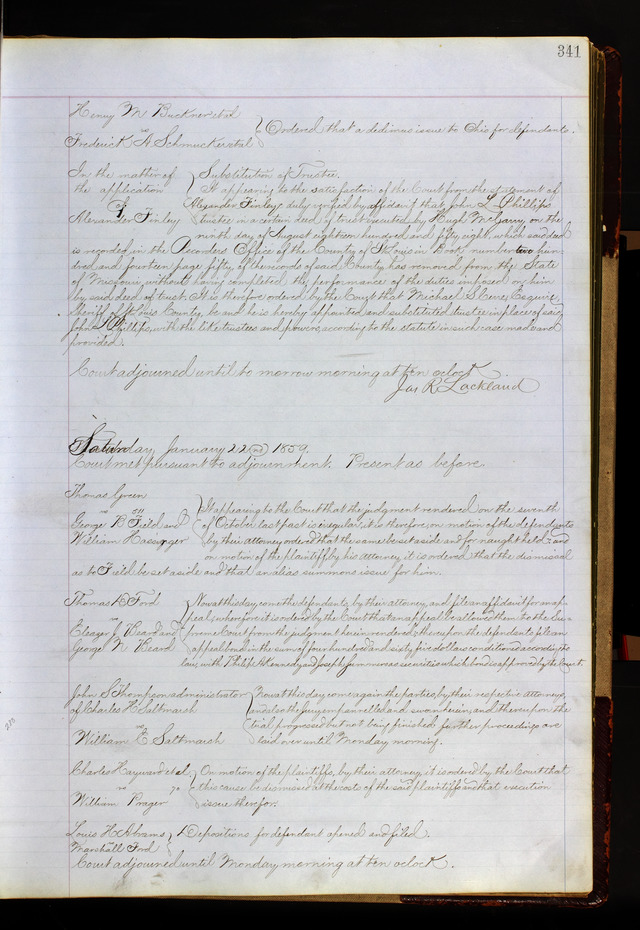 341
Henry M Buckner et al
vs
Frederick A Schmucker et al
Ordered that a dedimus issue to Ohio for defendants.
In the matter of
the application
of
Alexander Finley
Substitution of Trustee.
It appearing to the satisfaction of the Court from the statement of
Alexander Finley, duly verified by affidavit that John L Phillips
trustee in a certain deed of trust executed by Hugh McGarry on the
ninth day of August eighteen hundred and fifty eight, which said deed
is recorded in the Recorders Office of the County of St Louis in Book number two hun-
dred and fourteen page fifty, of the records of said County, has removed from the State
of Missouri, without having completed the performance of the duties imposed on him
by said deed of trust. It is therefore ordered by the Court that Michael S Cerre, Esquire,
Sheriff of St Louis County, be and he is hereby appointed and substituted trustee in place of said
John L Phillips, with the like trustees and powers, according to the statute in such case made and
provided.
Court adjourned until to morrow morning at ten oclock
Jas R. Lackland
Saturday January 22nd 1859.
Court met pursuant to adjournment. Present as before
Thomas Green
vs
George B Field and
William Hassinger
It appearing to the Court that the judgment rendered on the seventh
of October last past is irregular, it is therefore, on motion of the defendants
by their attorney ordered that the same be set aside and for naught held; and
on motion of the plaintiff by his attorney, it is ordered that the dismissal
as to Field be set aside and that an alias summons issue for him.
Thomas B Ford
vs
Eleazer J Heard and
George W Heard
Now at this day come the defendants, by their attorney, and file an affidavit for an ap-
peal, wherefore it is ordered by the Court that an appeal be allowed them to the Su-
preme Court from the judgment herein rendered; thereupon the defendants file an
appeal bond in the sum of four hundred and sixty five dollars conditioned according to
law, with Philip A Kennedy and Joseph as securities which bond is approved by the Court.
John S Thompson administrator
of Charles H Saltmarsh
vs
William E Saltmarsh
Now at this day come again the parties, by their respective attorneys,
and also the Jury empannelled and sworn herein, and thereupon the
trial progressed but not being finished further proceedings are
laid over until Monday morning.
Charles Hayward et al
vs
William Prager
On motion of the plaintiffs, by their attorney, it is ordered by the Court that
this cause be dismissed at the costs of the said plaintiffs and that execution
issue therefor.
Louis H Abrams
vs
Marshall Ford
Depositions for defendant opened and filed.
Court adjourned until Monday morning at ten oclock.